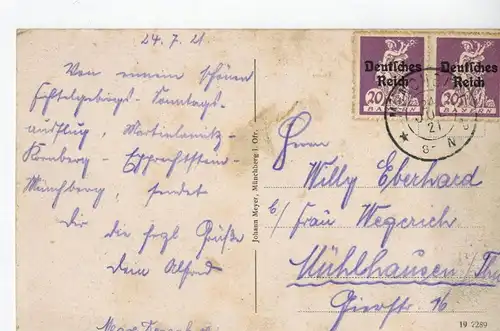 24.7.21
Von meinem schönen
Fichtelgebirgs-Sonntags-
ausflug, Martinlamitz-
Kornberg-Epprechtstein-
Münchberg, sendet
Dir die herzl Grüße
Dein Alfred
Johann Meyer, Münchberg i. Ofr.
Deutsches Reich
20 20
BAYERN
Deutsches Reich
20
BAYERN
21
8-
N
Herrn
Willy Eberhard
b/ Frau Wegerich
Mühlhausen/
16
19 2289